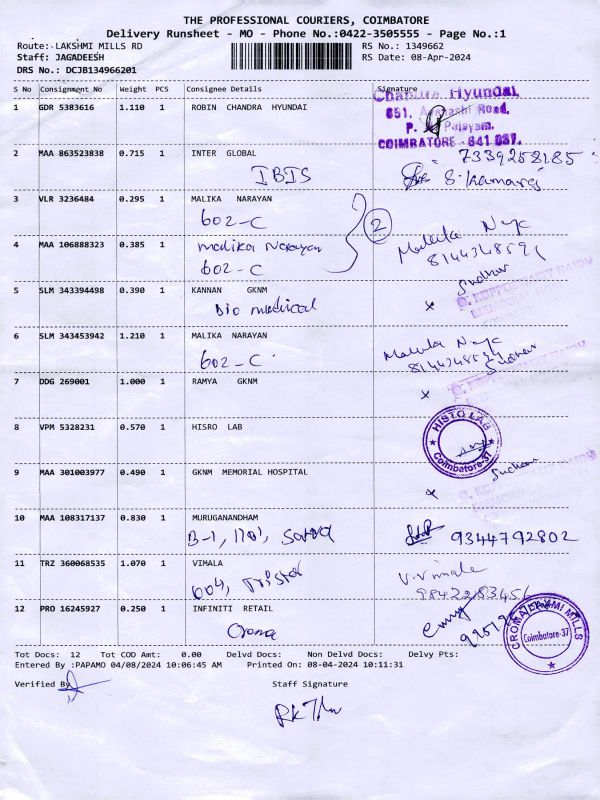 THE PROFESSIONAL COURIERS, COIMBATORE
Delivery Runsheet - MO - Phone No.:0422-3505555 - Page No.:1
Route: LAKSHMI MILLS RD RS No.: 1349662
Staff: JAGADEESH RS Date: 08-Apr-2024
DRS No.: DCJB134966201
S No Consignment No Weight PCS Consignee Details Signature
1 GDR 5383616 1.110 1 ROBIN CHANDRA HYUNDAI
Hyundai,
651, Road,
P. Palayam,
COIMBATORE - 641 037.
2 MAA 863523838 0.715 1 INTER GLOBAL 7339258185
IBIS S. Kamaraj
3 VLR 3236484 0.295 1 MALIKA NARAYAN
602-C 2
4 MAA 106888323 0.385 1 malika Narayan
602-C
5 SLM 343394498 0.390 1 KANNAN GKNM
Bio medical x
6 SLM 343453942 1.210 1 MALIKA NARAYAN
602-C
7 DDG 269001 1.000 1 RAMYA GKNM x
8 VPM 5328231 0.570 1 HISRO LAB
HISTO LAB
Coimbatore-37
9 MAA 301003977 0.490 1 GKNM MEMORIAL HOSPITAL x
10 MAA 108317137 0.830 1 MURUGANANDHAM
B-1, 1101, 9344792802
11 TRZ 360068535 1.070 1 VIMALA V. Vimala
604,
12 PRO 16245927 0.250 1 INFINITI RETAIL
Croma
CROMA LAXMI MILLS
Coimbatore-37
Tot Docs: 12 Tot COD Amt: 0.00 Delvd Docs: Non Delvd Docs: Delvy Pts:
Entered By :PAPAMO 04/08/2024 10:06:45 AM Printed On: 08-04-2024 10:11:31
Verified By Staff Signature